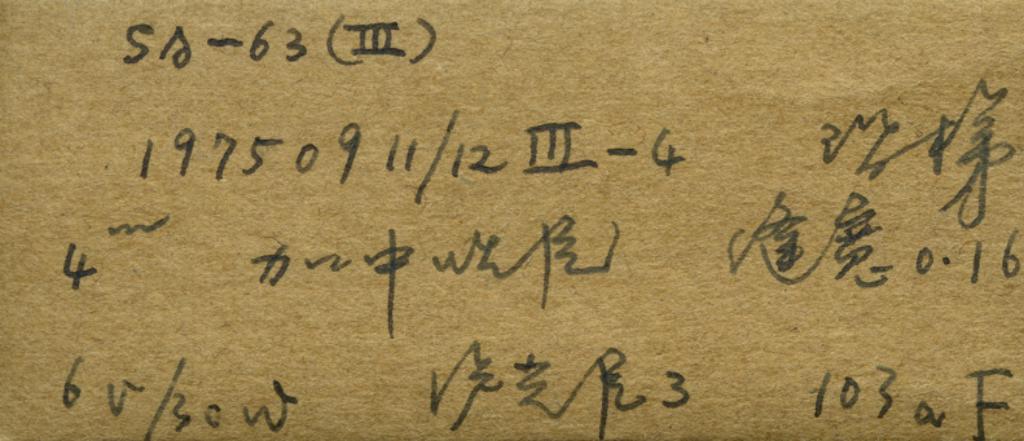 SA-63(III)
19750911/12 III-4 阶梯
4m 加中性尼 缝宽0.16
6V/30W 洗尼3 103aF